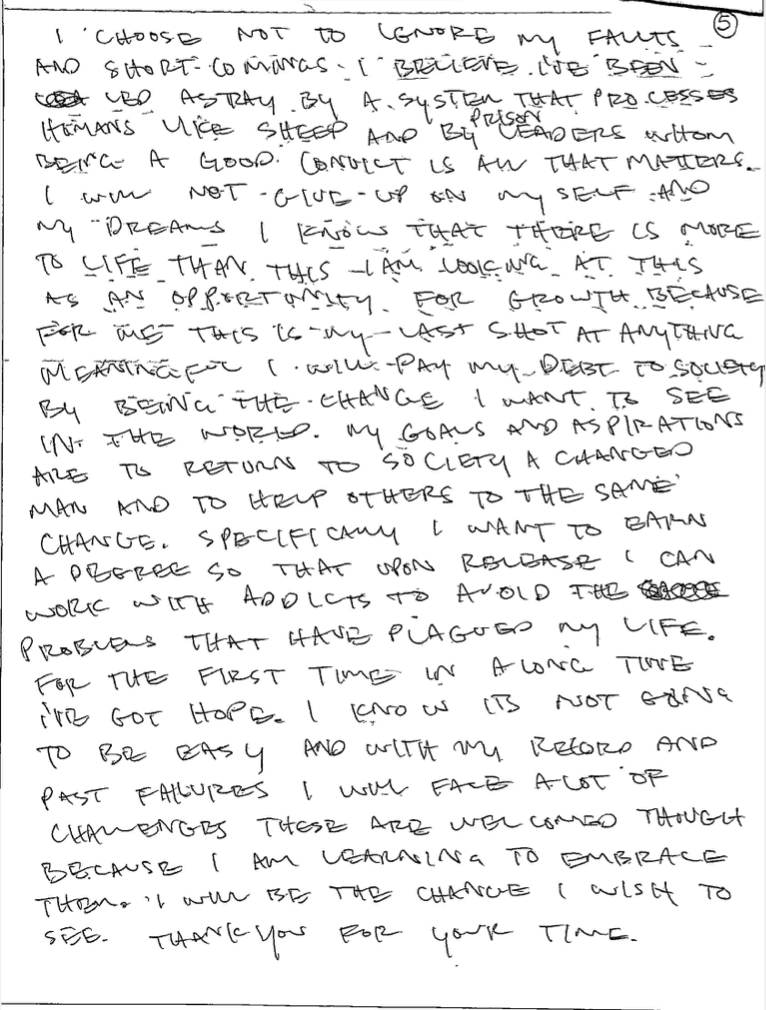 5
I CHOOSE NOT TO IGNORE MY FAULTS
AND SHORT-COMINGS. I BELIEVE I'VE BEEN
LED ASTRAY BY A SYSTEM THAT PROCESSES
PRISON
HUMANS LIKE SHEEP AND BY LEADERS WHOM
BEING A GOOD CONVICT IS ALL THAT MATTERS.
I WILL NOT GIVE-UP ON MY SELF AND
MY DREAMS I KNOW THAT THERE IS MORE
TO LIFE THAN THIS I AM LOOKING AT THIS
AS AN OPPORTUNITY FOR GROWTH BECAUSE
FOR ME THIS IS MY LAST SHOT AT ANYTHING
MEANINGFUL I WILL PAY MY DEBT TO SOCIETY
BY BEING THE CHANGE I WANT TO SEE
IN THE WORLD. MY GOALS AND ASPIRATIONS
ARE TO RETURN TO SOCIETY A CHANGED
MAN AND TO HELP OTHERS TO THE SAME
CHANGE. SPECIFICALLY I WANT TO EARN
A DEGREE SO THAT UPON RELEASE I CAN
WORK WITH ADDICTS TO AVOID THE
PROBLEMS THAT HAVE PLAGUED MY LIFE.
FOR THE FIRST TIME IN A LONG TIME
I'VE GOT HOPE. I KNOW ITS NOT GOING
TO BE EASY AND WITH MY RECORD AND
PAST FAILURES I WILL FACE A LOT OF
CHALLENGES THESE ARE WELCOMED THOUGH
BECAUSE I AM LEARNING TO EMBRACE
THEM. I WILL BE THE CHANGE I WISH TO
SEE. THANK YOU FOR YOUR TIME.